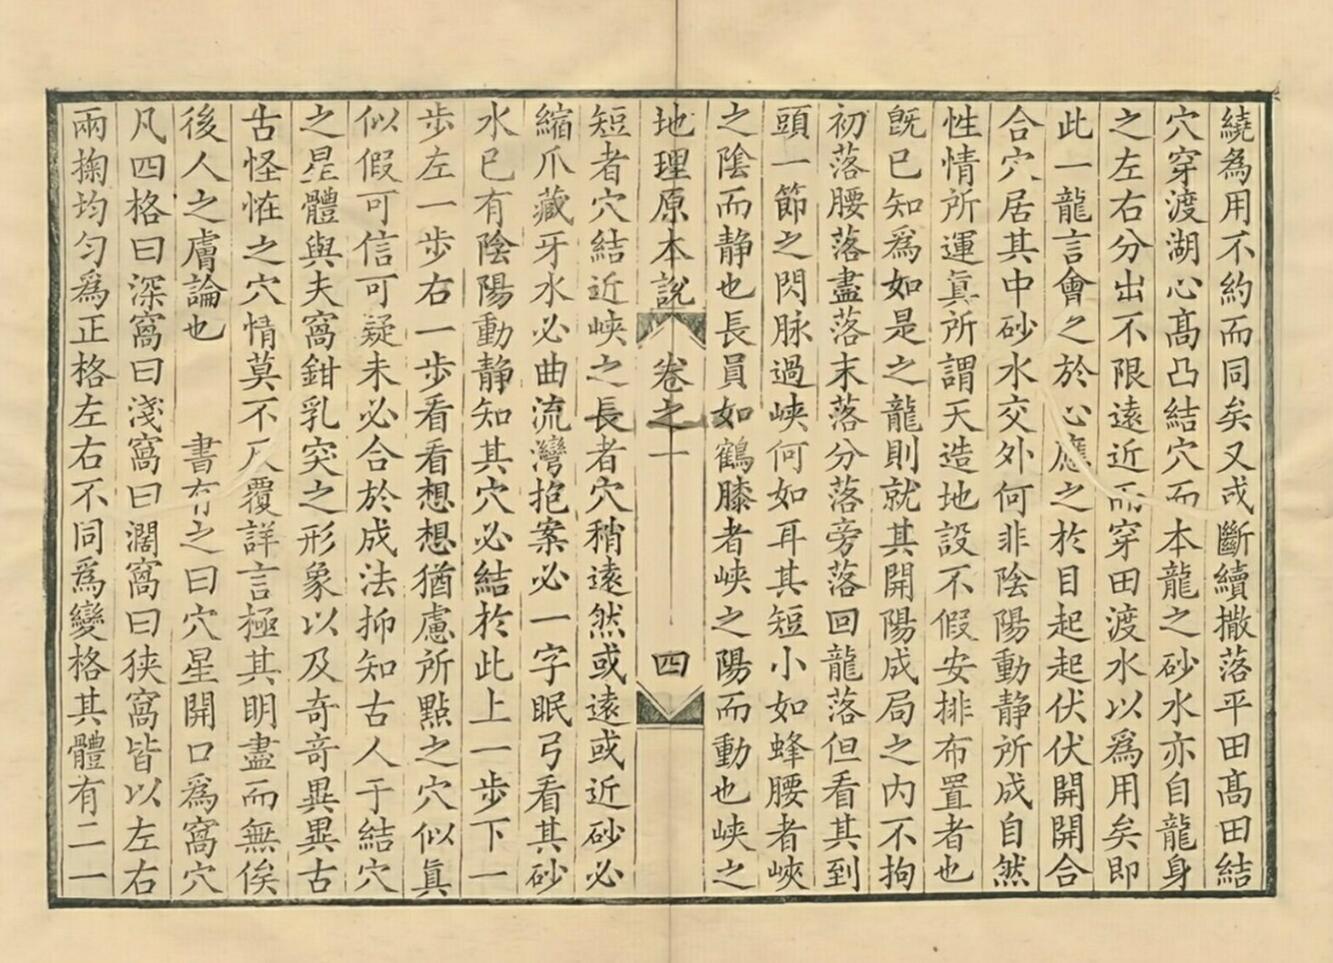 繞為用不約而同矣又或斷續撒落平田髙田結
穴穿渡湖心髙凸結穴而本龍之砂水亦自龍身
之左右分出不限遠近而穿田渡水以為用矣即
此一龍言會之於心應之於目起起伏伏開開合
合穴居其中砂水交外何非陰陽動静所成自然
性情所運眞所謂天造地設不假安排布置者也
旣已知為如是之龍則就其開陽成局之内不拘
初落腰落盡落末落分落旁落回龍落但看其到
頭一節之閃脉過峽何如耳其短小如蜂腰者峽
之陰而静也長員如鶴膝者峽之陽而動也峽之
地理原本說 卷之十 四
短者穴結近峽之長者穴稍遠然或遠或近砂必
縮爪藏牙水必曲流灣抱案必一字眠弓看其砂
水已有陰陽動静知其穴必結於此上一步下一
步左一步右一步看看想想猶慮所點之穴似眞
似假可信可疑未必合於成法抑知古人于結穴
之星體與夫窩鉗乳突之形象以及奇奇異異古
古怪怪之穴情莫不反覆詳言極其明盡而無俟
後人之膚論也 書有之曰穴星開口為窩穴
凡四格曰深窩曰淺窩曰濶窩曰狹窩皆以左右
兩掬均匀為正格左右不同為變格其體有二一